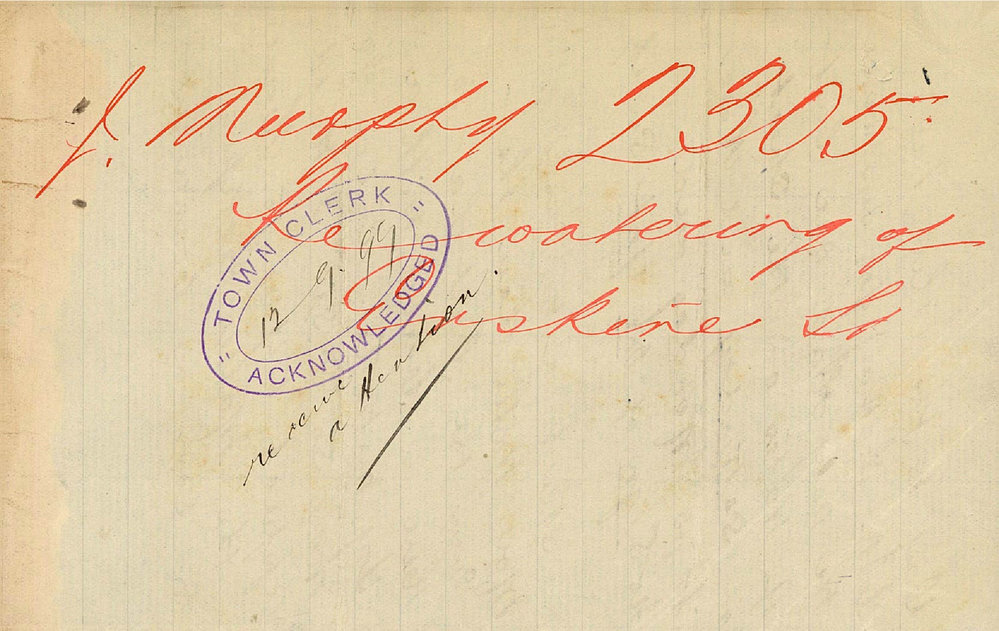 J. Murphy 2305
Re watering of
Erskine St
" TOWN CLERK "
12 9. 99
ACKNOWLEDGED
receive
attention